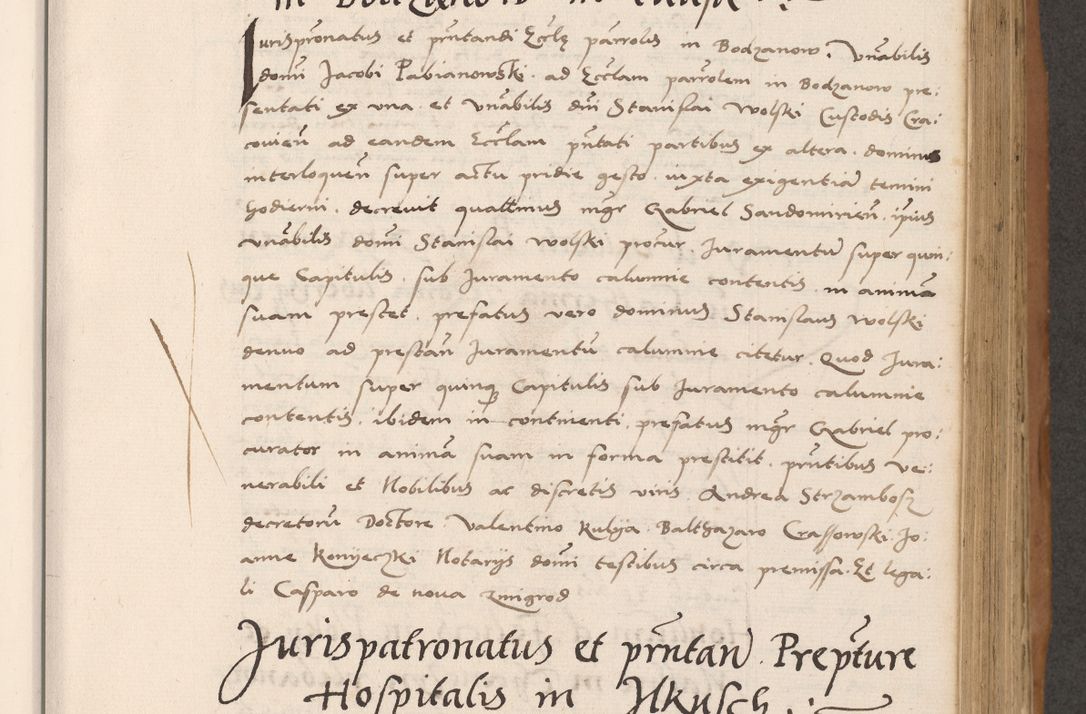 in Bodzanow in causa
Jurispronatus et pñtandi Eccłę parrolis in Bodzanow. Vnabilis
domi Jacobi Pabianowski. ad Eccłam parrolem in Bodzanow pre:
sentati ex vna. et Vnabilis dni Stanislai Wolski Custodis Cra:
couien ad eandem Eccłam pñtati partibus ex altera. dominus
interloquen super actu pridie gesto. iuxta exigentiam termini
hodierni. decreuit quatinus mgr Gabriel Sandomirien. ipius
vnabilis domi Stanislai Wolski procur. Juramentu super quin:
que Capitulis. sub Juramento calumnie contentis. in animam
suam prestet. prefatus vero dominus Stanislaus Wolski
denuo ad prestan Juramentu calumnie citetur. Quod Jura:
mentum super quinq Capitulis sub Juramento calumnie
contentis. ibidem in continenti. prefatus mgr Gabriel pro:
curator in anima suam in forma prestitit. pñtibus ve:
nerabili et Nobilibus ac discretis viris. Andrea Strzambosz
decretoru Doctore. Valentino Kulya. Balthazaro Crassowski. Jo:
anne Konyeczki Notarijs domi testibus circa premissa. Et lega:
li Casparo de noua Zmigrod
Jurispatronatus et pñtan. Prepture
Hospitalis in Ilkusch